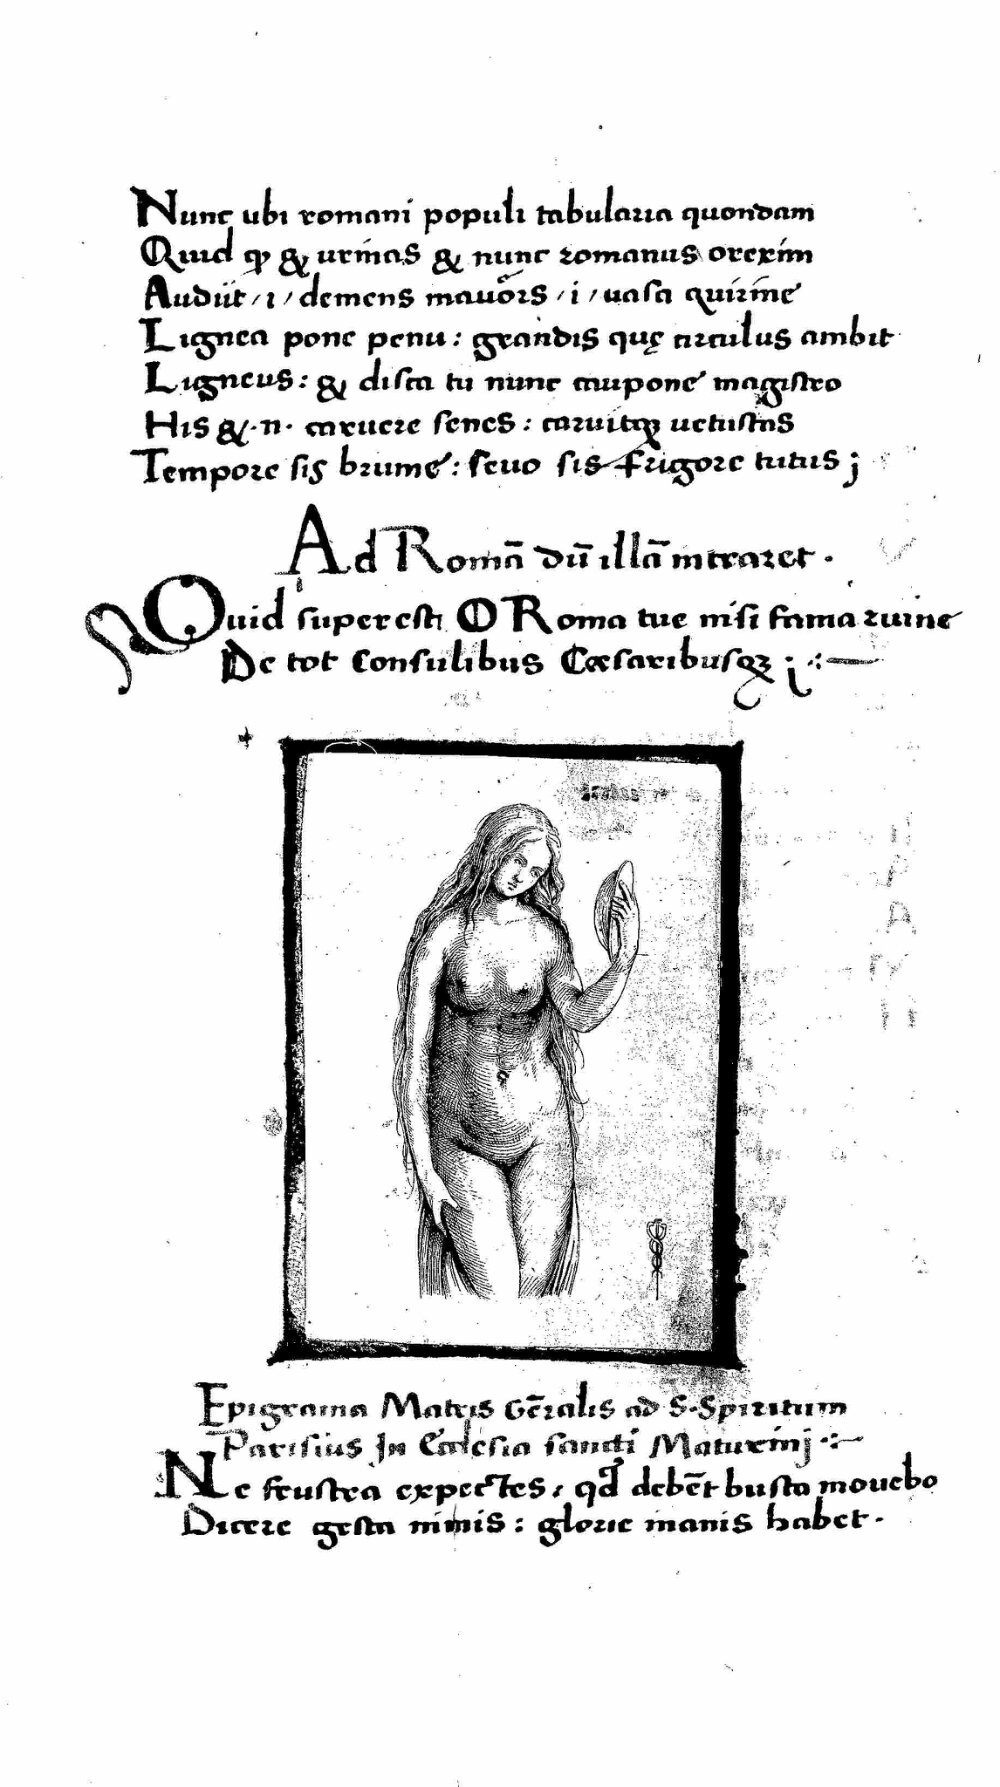 Nunc ubi romani populi tabularia quondam
Quid ꝙ & urinas & nunc romanus orexim
Audiit / i / demens mauors / i / uasa quirine
Lignea pone penu : grandis quę circulus ambit
Ligneus : & disca tu nunc caupone magistro
His &.n. caruere senes : caruitqꝫ uetustas
Tempore sis brume : seuo sis frigore tutus ;
Ad Romā dū illā intraret .
Quid superest O Roma tue nisi fama ruine
De tot Consulibus Cæsaribusqꝫ ;
Epigrama Matris Gēralis ad S. Spiritum
Parisius In Eclesia sancti Maturinj
Ne frustra expectes, qđ debēt busta mouebo
Dicere gesta nimis : glorie inanis habet .